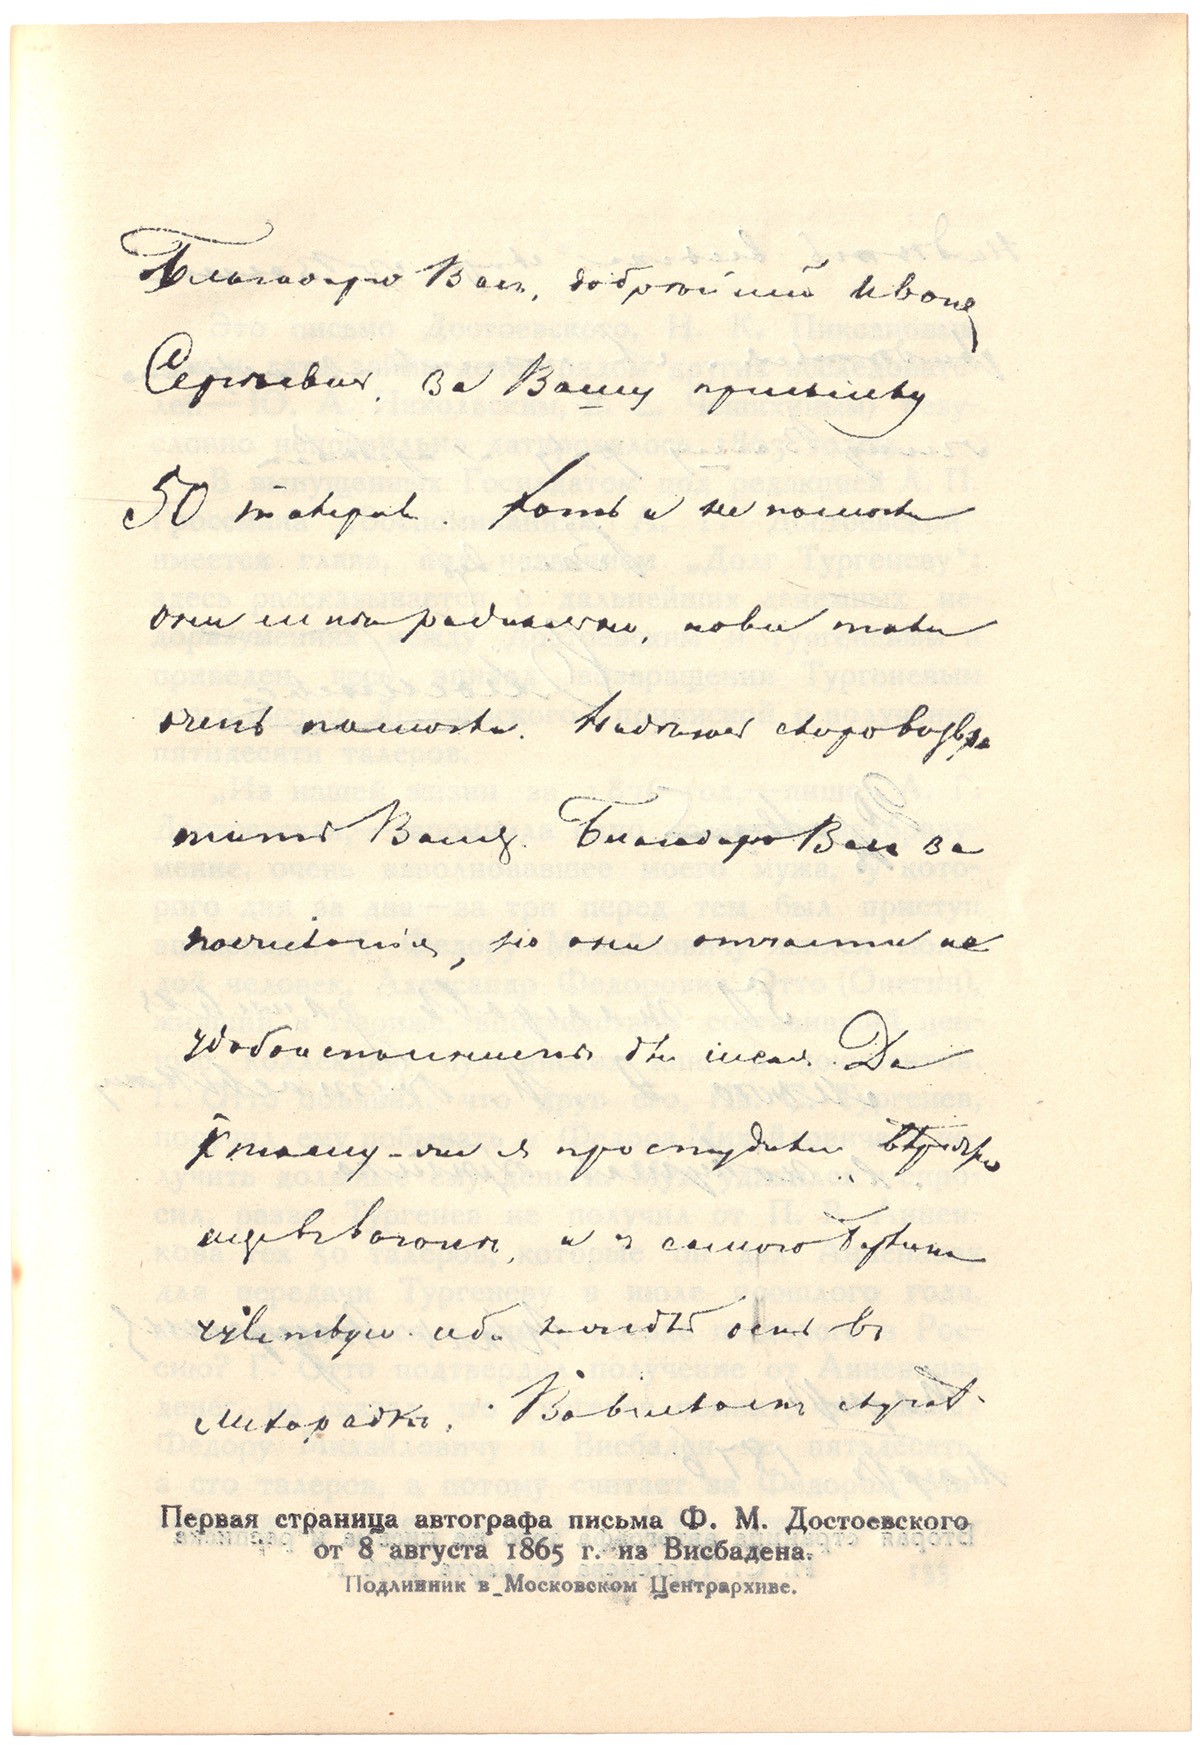 Благодарю Васъ, добрѣйшій Иванъ
Сергѣевичъ, за Вашу присылку
50 талеровъ. Хоть и не помогли
они мнѣ радикально, но все таки
очень помогли. Надѣюсь скоро возвра
тить Вамъ. Благодарю Васъ за
пожеланія, но они отчасти не
удобоисполнимы для меня. Да
къ тому-же я простудился, вѣроятно
еще въ вагонѣ, и съ самого Берлина
чувствую себя каждый день въ
лихорадкѣ. Во всякомъ случаѣ
Первая страница автографа письма Ф. М. Достоевского
от 8 августа 1865 г. из Висбадена.
Подлинник в Московском Центрархиве.